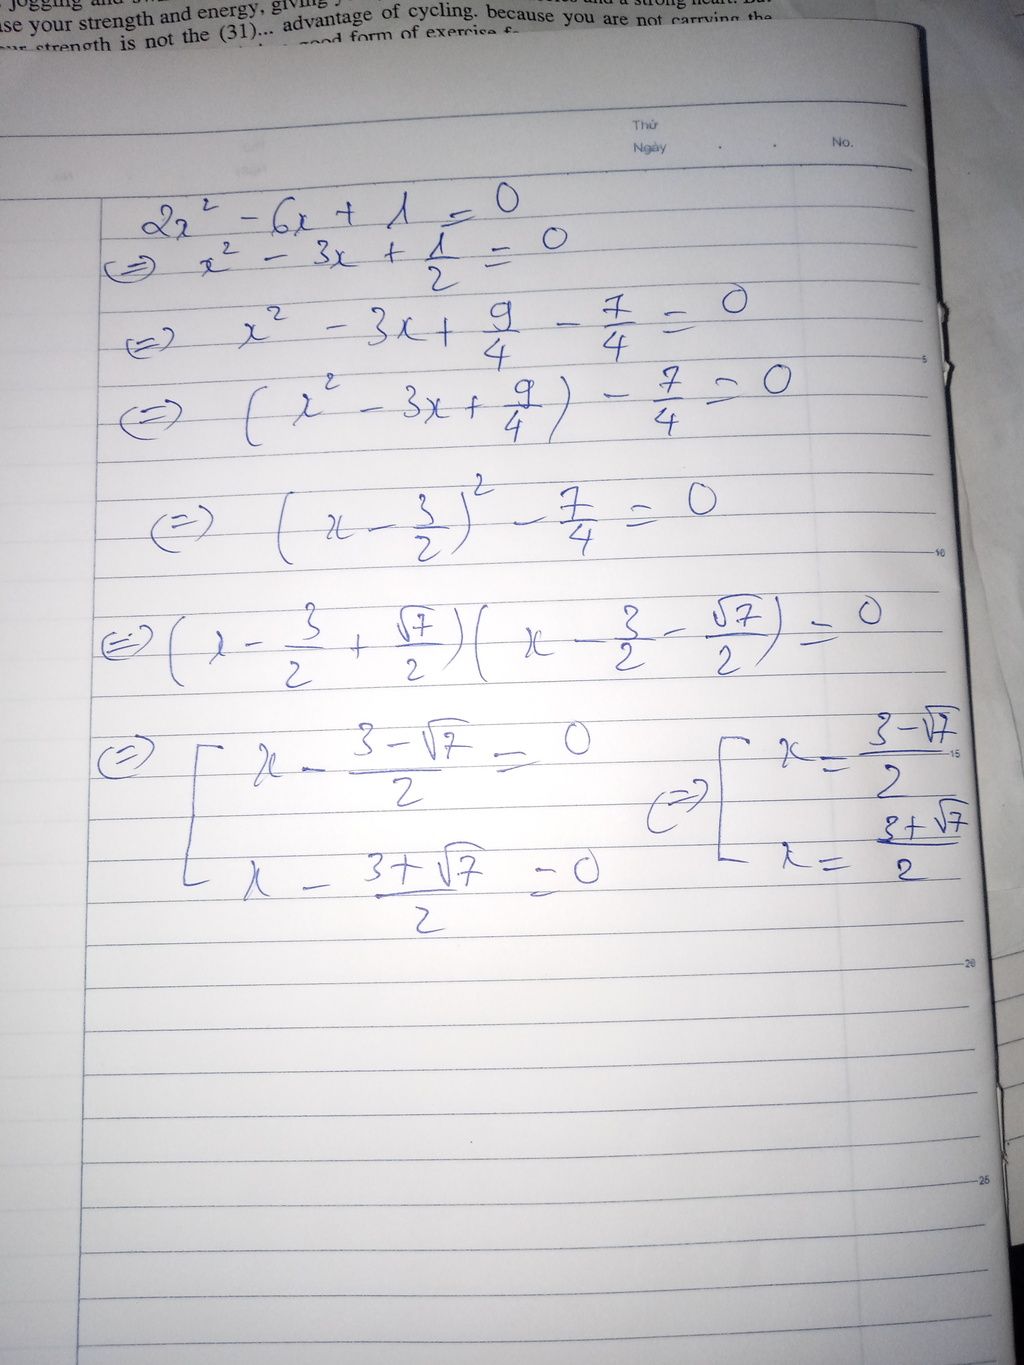 jogging and
use your strength and energy, giving
advantage of cycling. because you are not carrying the
strength is not the (31)... good form of exercise
Thứ
Ngày . . No.
2x² - 6x + 1 = 0
(=) x² - 3x + 1/2 = 0
(=) x² - 3x + 9/4 - 7/4 = 0
5
(=) (x² - 3x + 9/4) - 7/4 = 0
(=) (x - 3/2)² - 7/4 = 0
10
(=) (x - 3/2 + √7/2)(x - 3/2 - √7/2) = 0
(=) [ x - (3-√7)/2 = 0 (=) [ x = (3-√7)/2
15
x - (3+√7)/2 = 0 x = (3+√7)/2
20
25